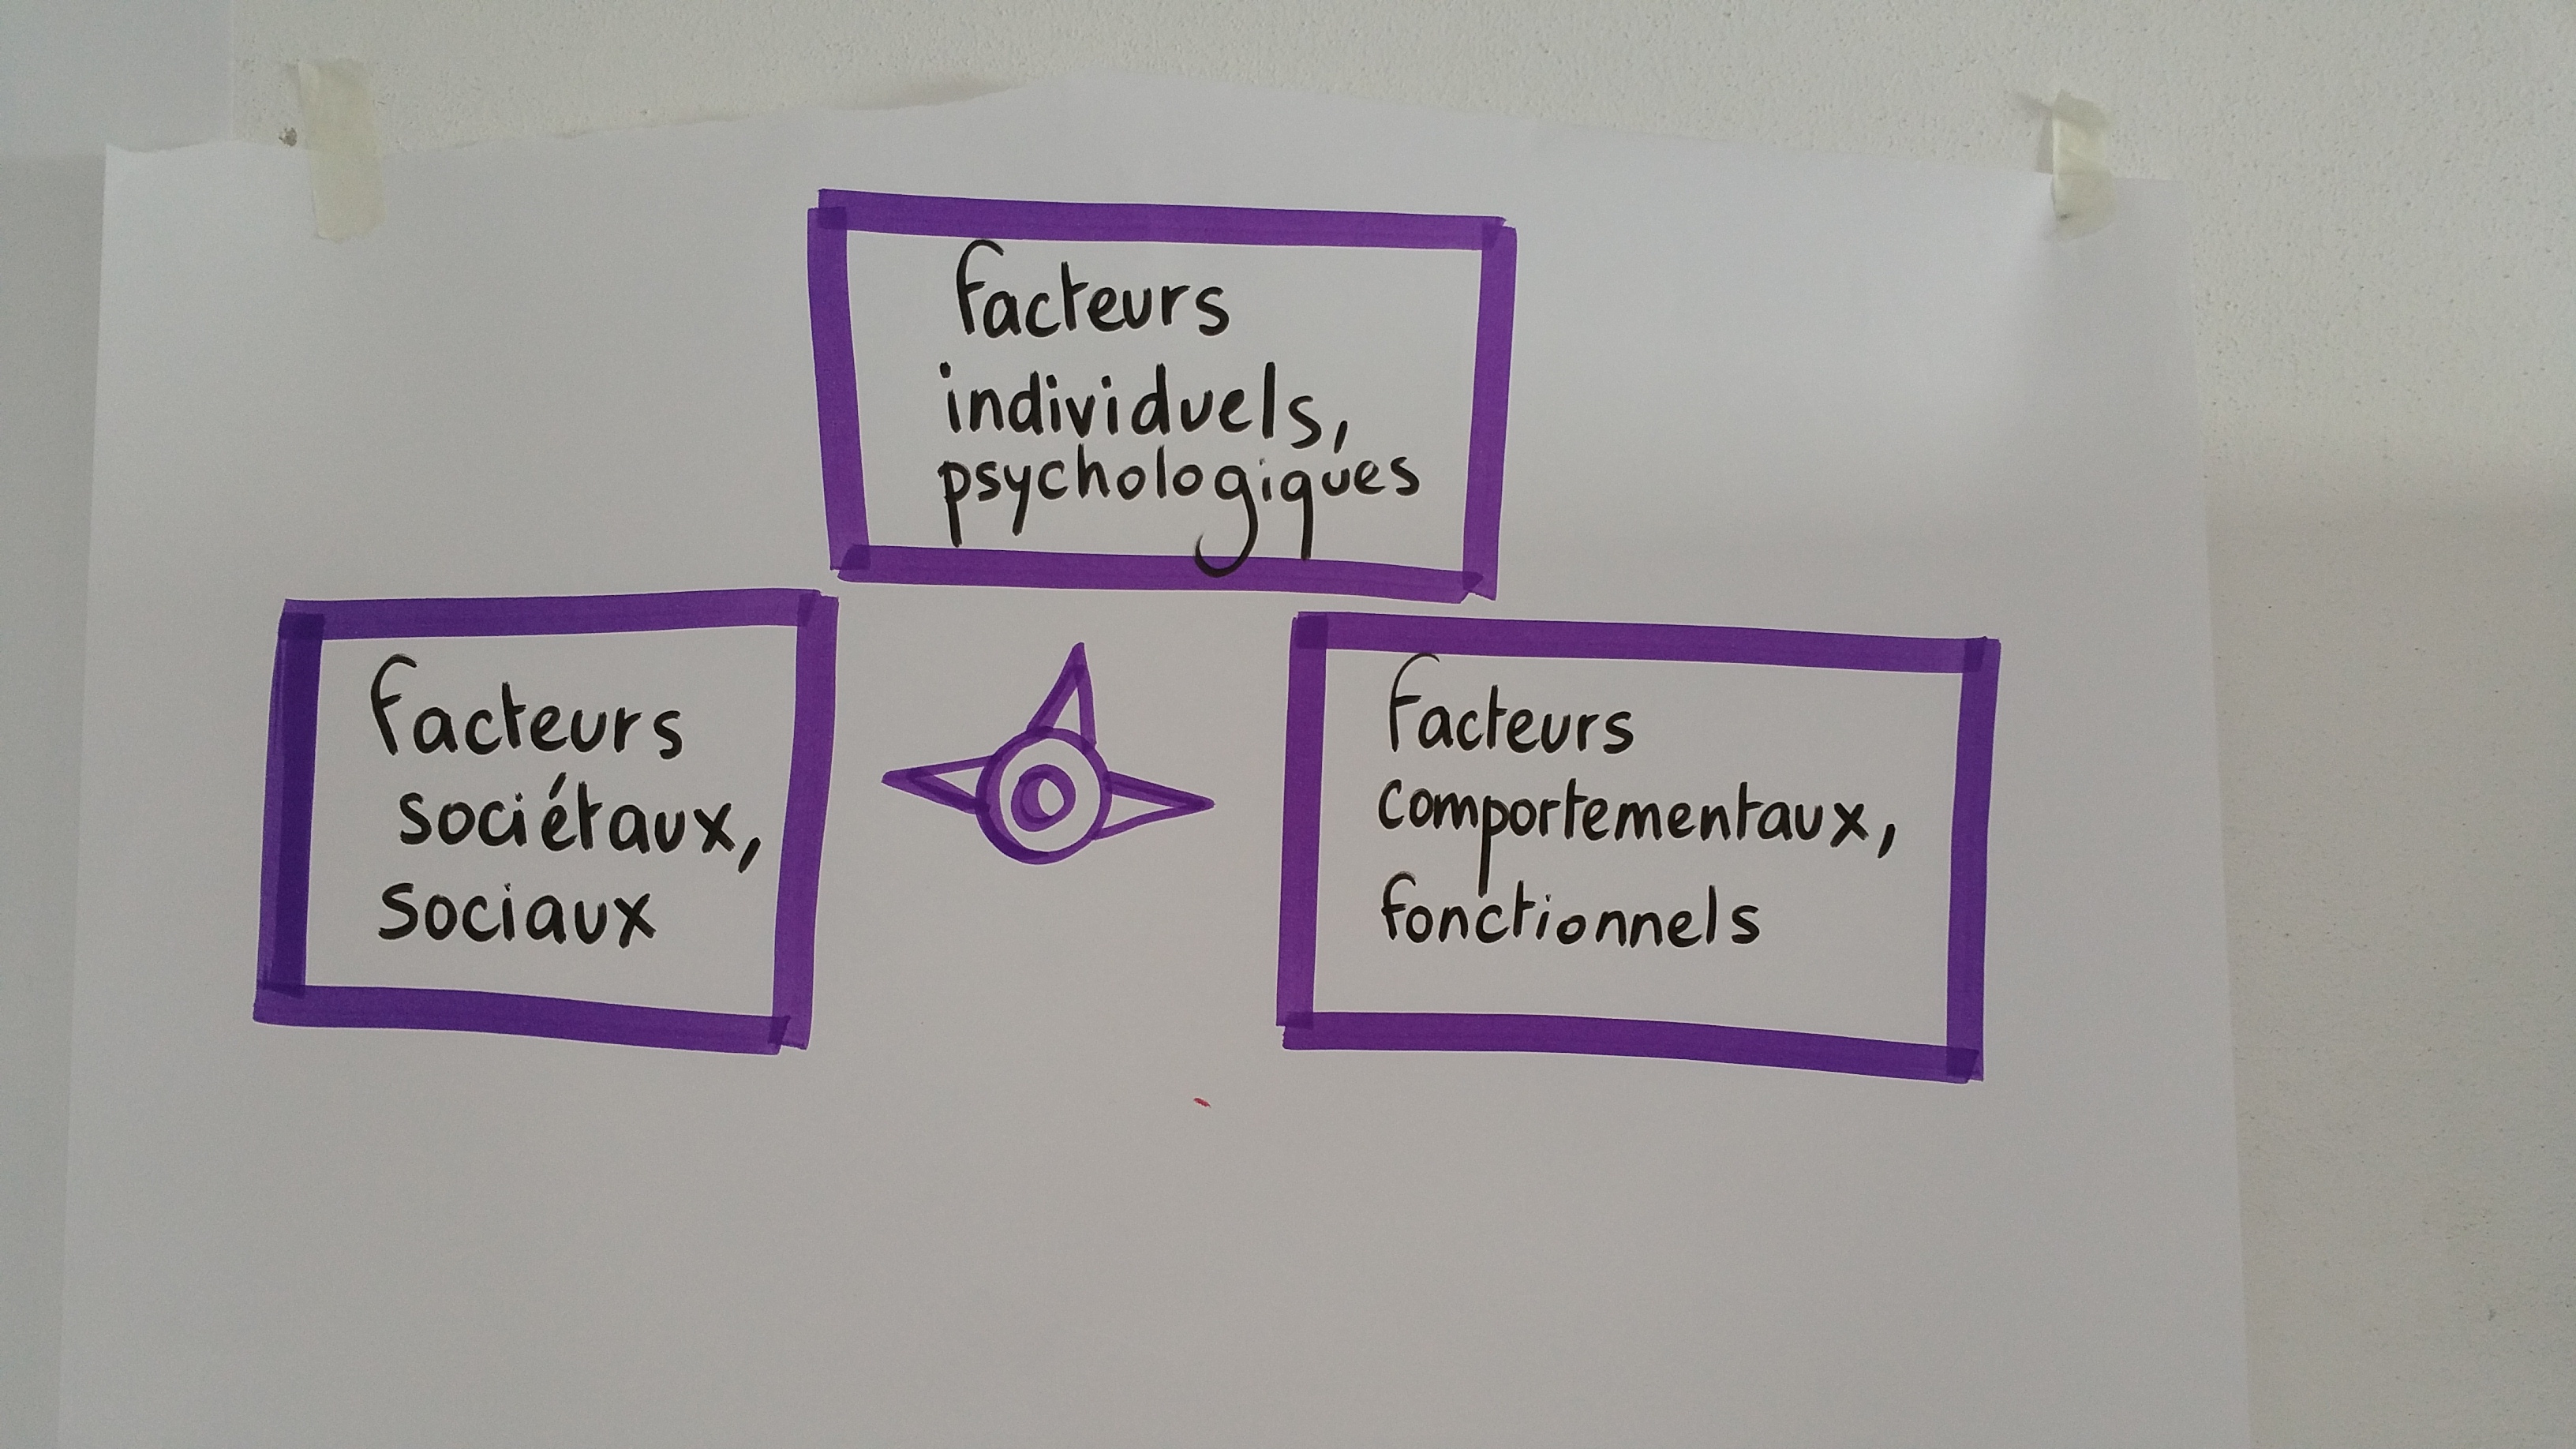 Facteurs
individuels,
psychologiques
Facteurs
sociétaux,
sociaux
Facteurs
comportementaux,
fonctionnels